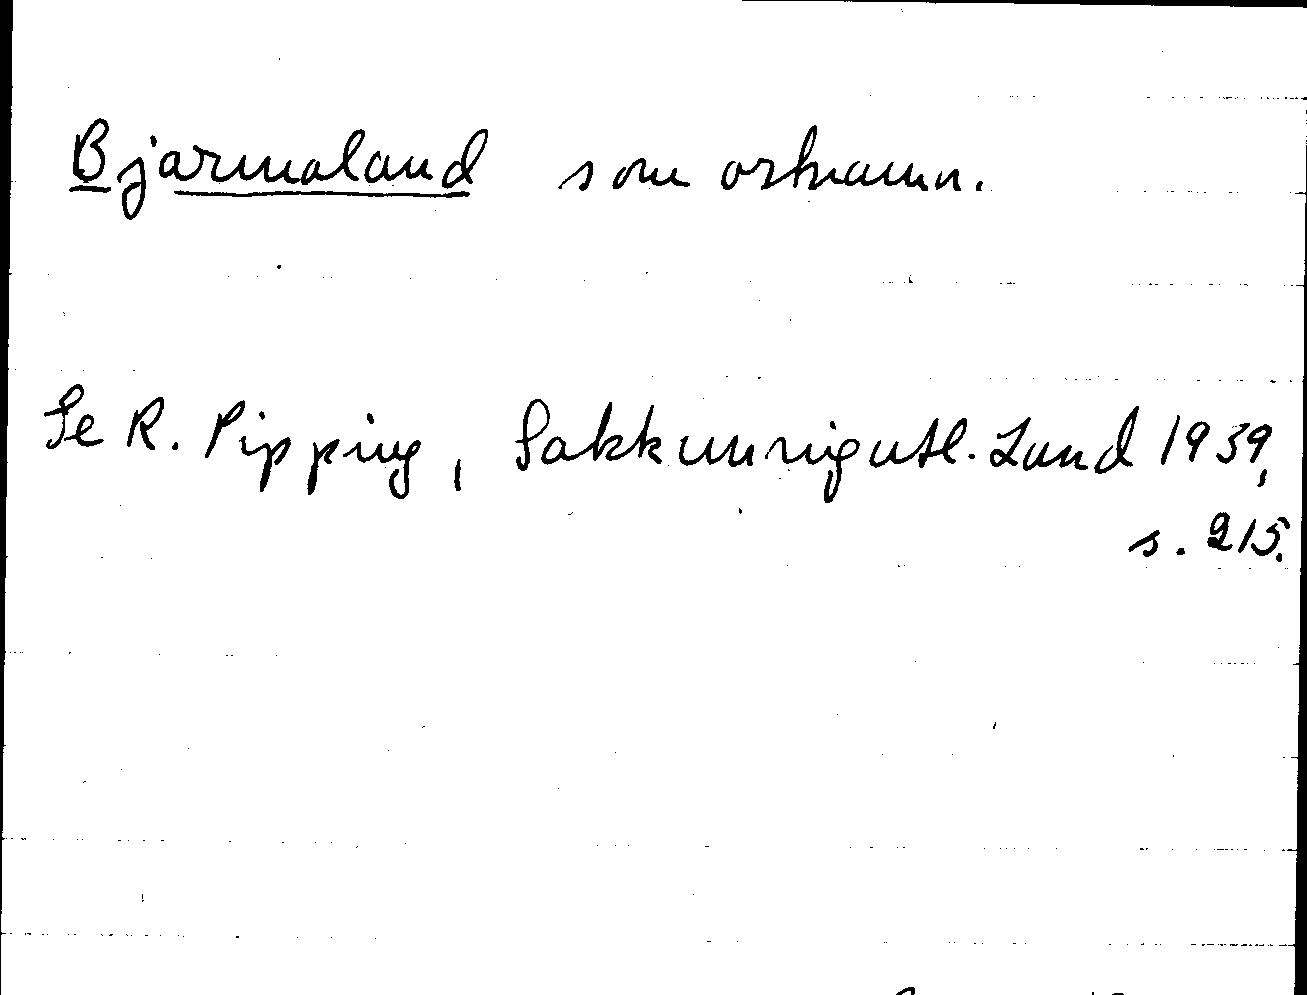 Bjarmaland som ortnamn.
Se R. Pipping, Sakkunnigutl. Lund 1939,
s. 215.